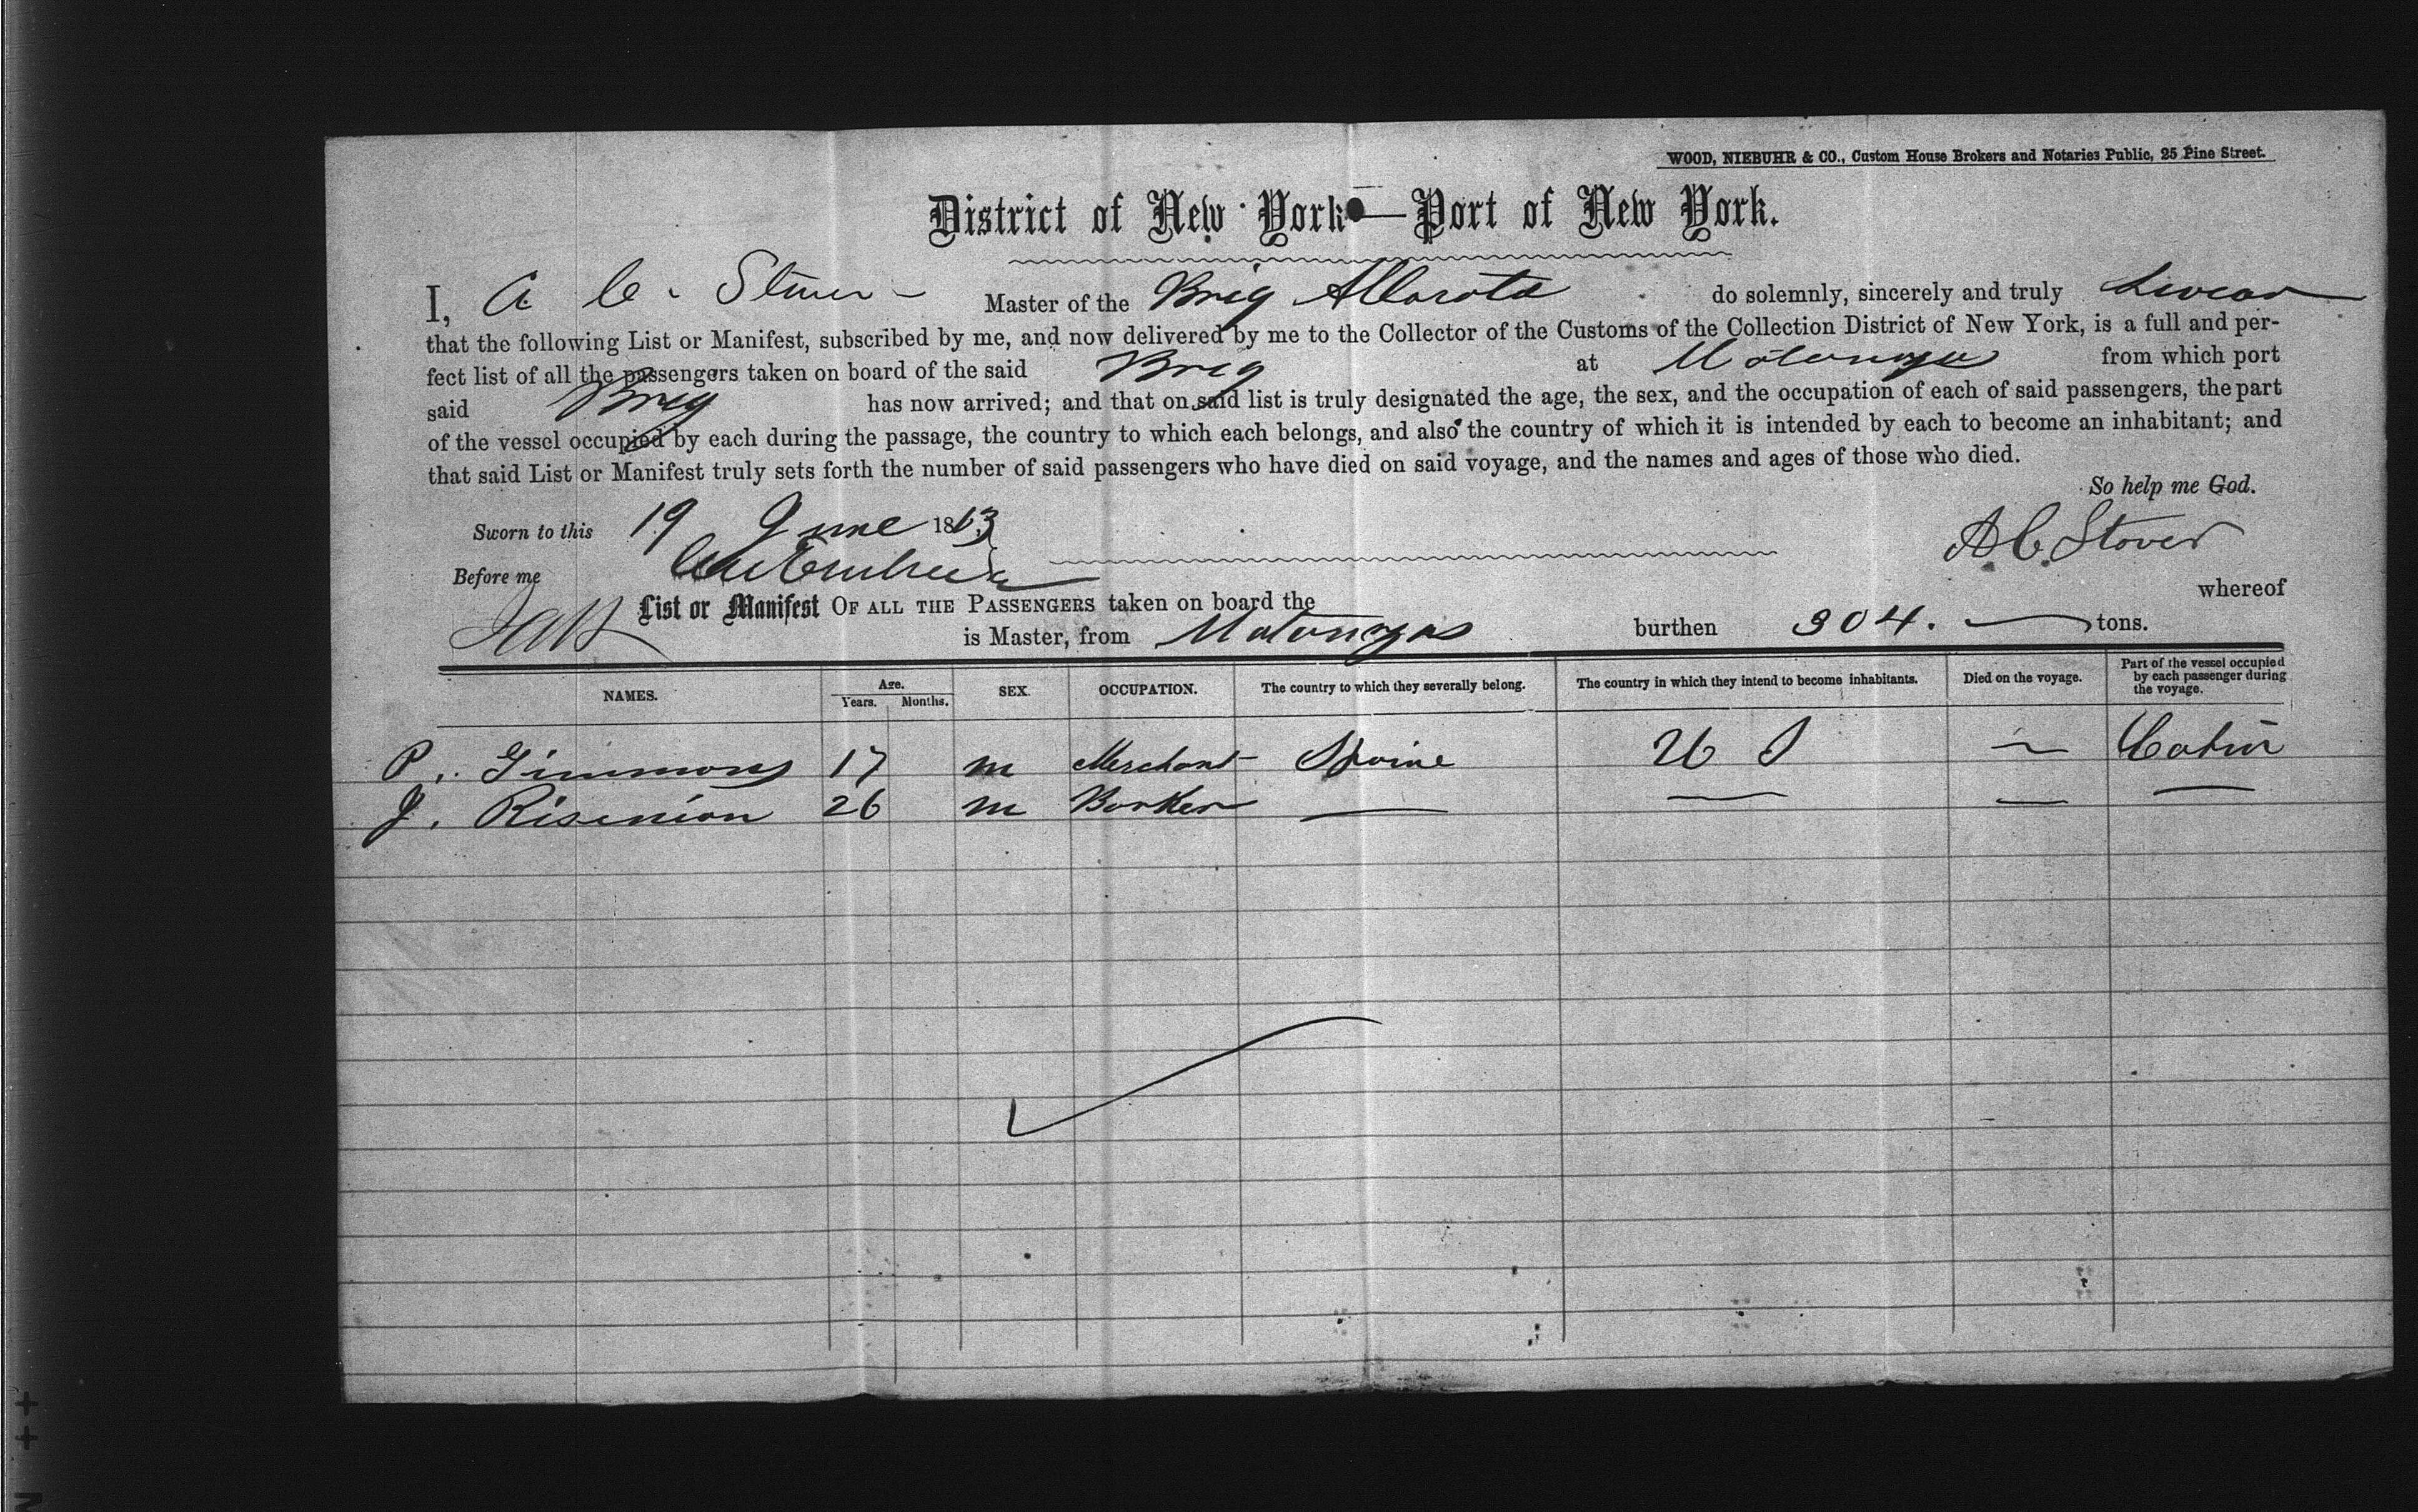 WOOD, NIEBUHR & CO., Custom House Brokers and Notaries Public, 25 Pine Street.
District of New York—Port of New York.
I, A C. Stover Master of the Brig do solemnly, sincerely and truly swear
that the following List or Manifest, subscribed by me, and now delivered by me to the Collector of the Customs of the Collection District of New York, is a full and per-
fect list of all the passengers taken on board of the said Brig at Matanzas from which port
said Brig has now arrived; and that on said list is truly designated the age, the sex, and the occupation of each of said passengers, the part
of the vessel occupied by each during the passage, the country to which each belongs, and also the country of which it is intended by each to become an inhabitant; and
that said List or Manifest truly sets forth the number of said passengers who have died on said voyage, and the names and ages of those who died.
So help me God.
Sworn to this 19 June 1863
A C Stover
Before me
List or Manifest OF ALL THE PASSENGERS taken on board the whereof
is Master, from Matanzas burthen 304. tons.
NAMES. Age. Years. Months. SEX. OCCUPATION. The country to which they severally belong. The country in which they intend to become inhabitants. Died on the voyage. Part of the vessel occupied by each passenger during the voyage.
P. Gimmons 17 m Merchant Spaine U S — Cabin
J. 26 m — — — —